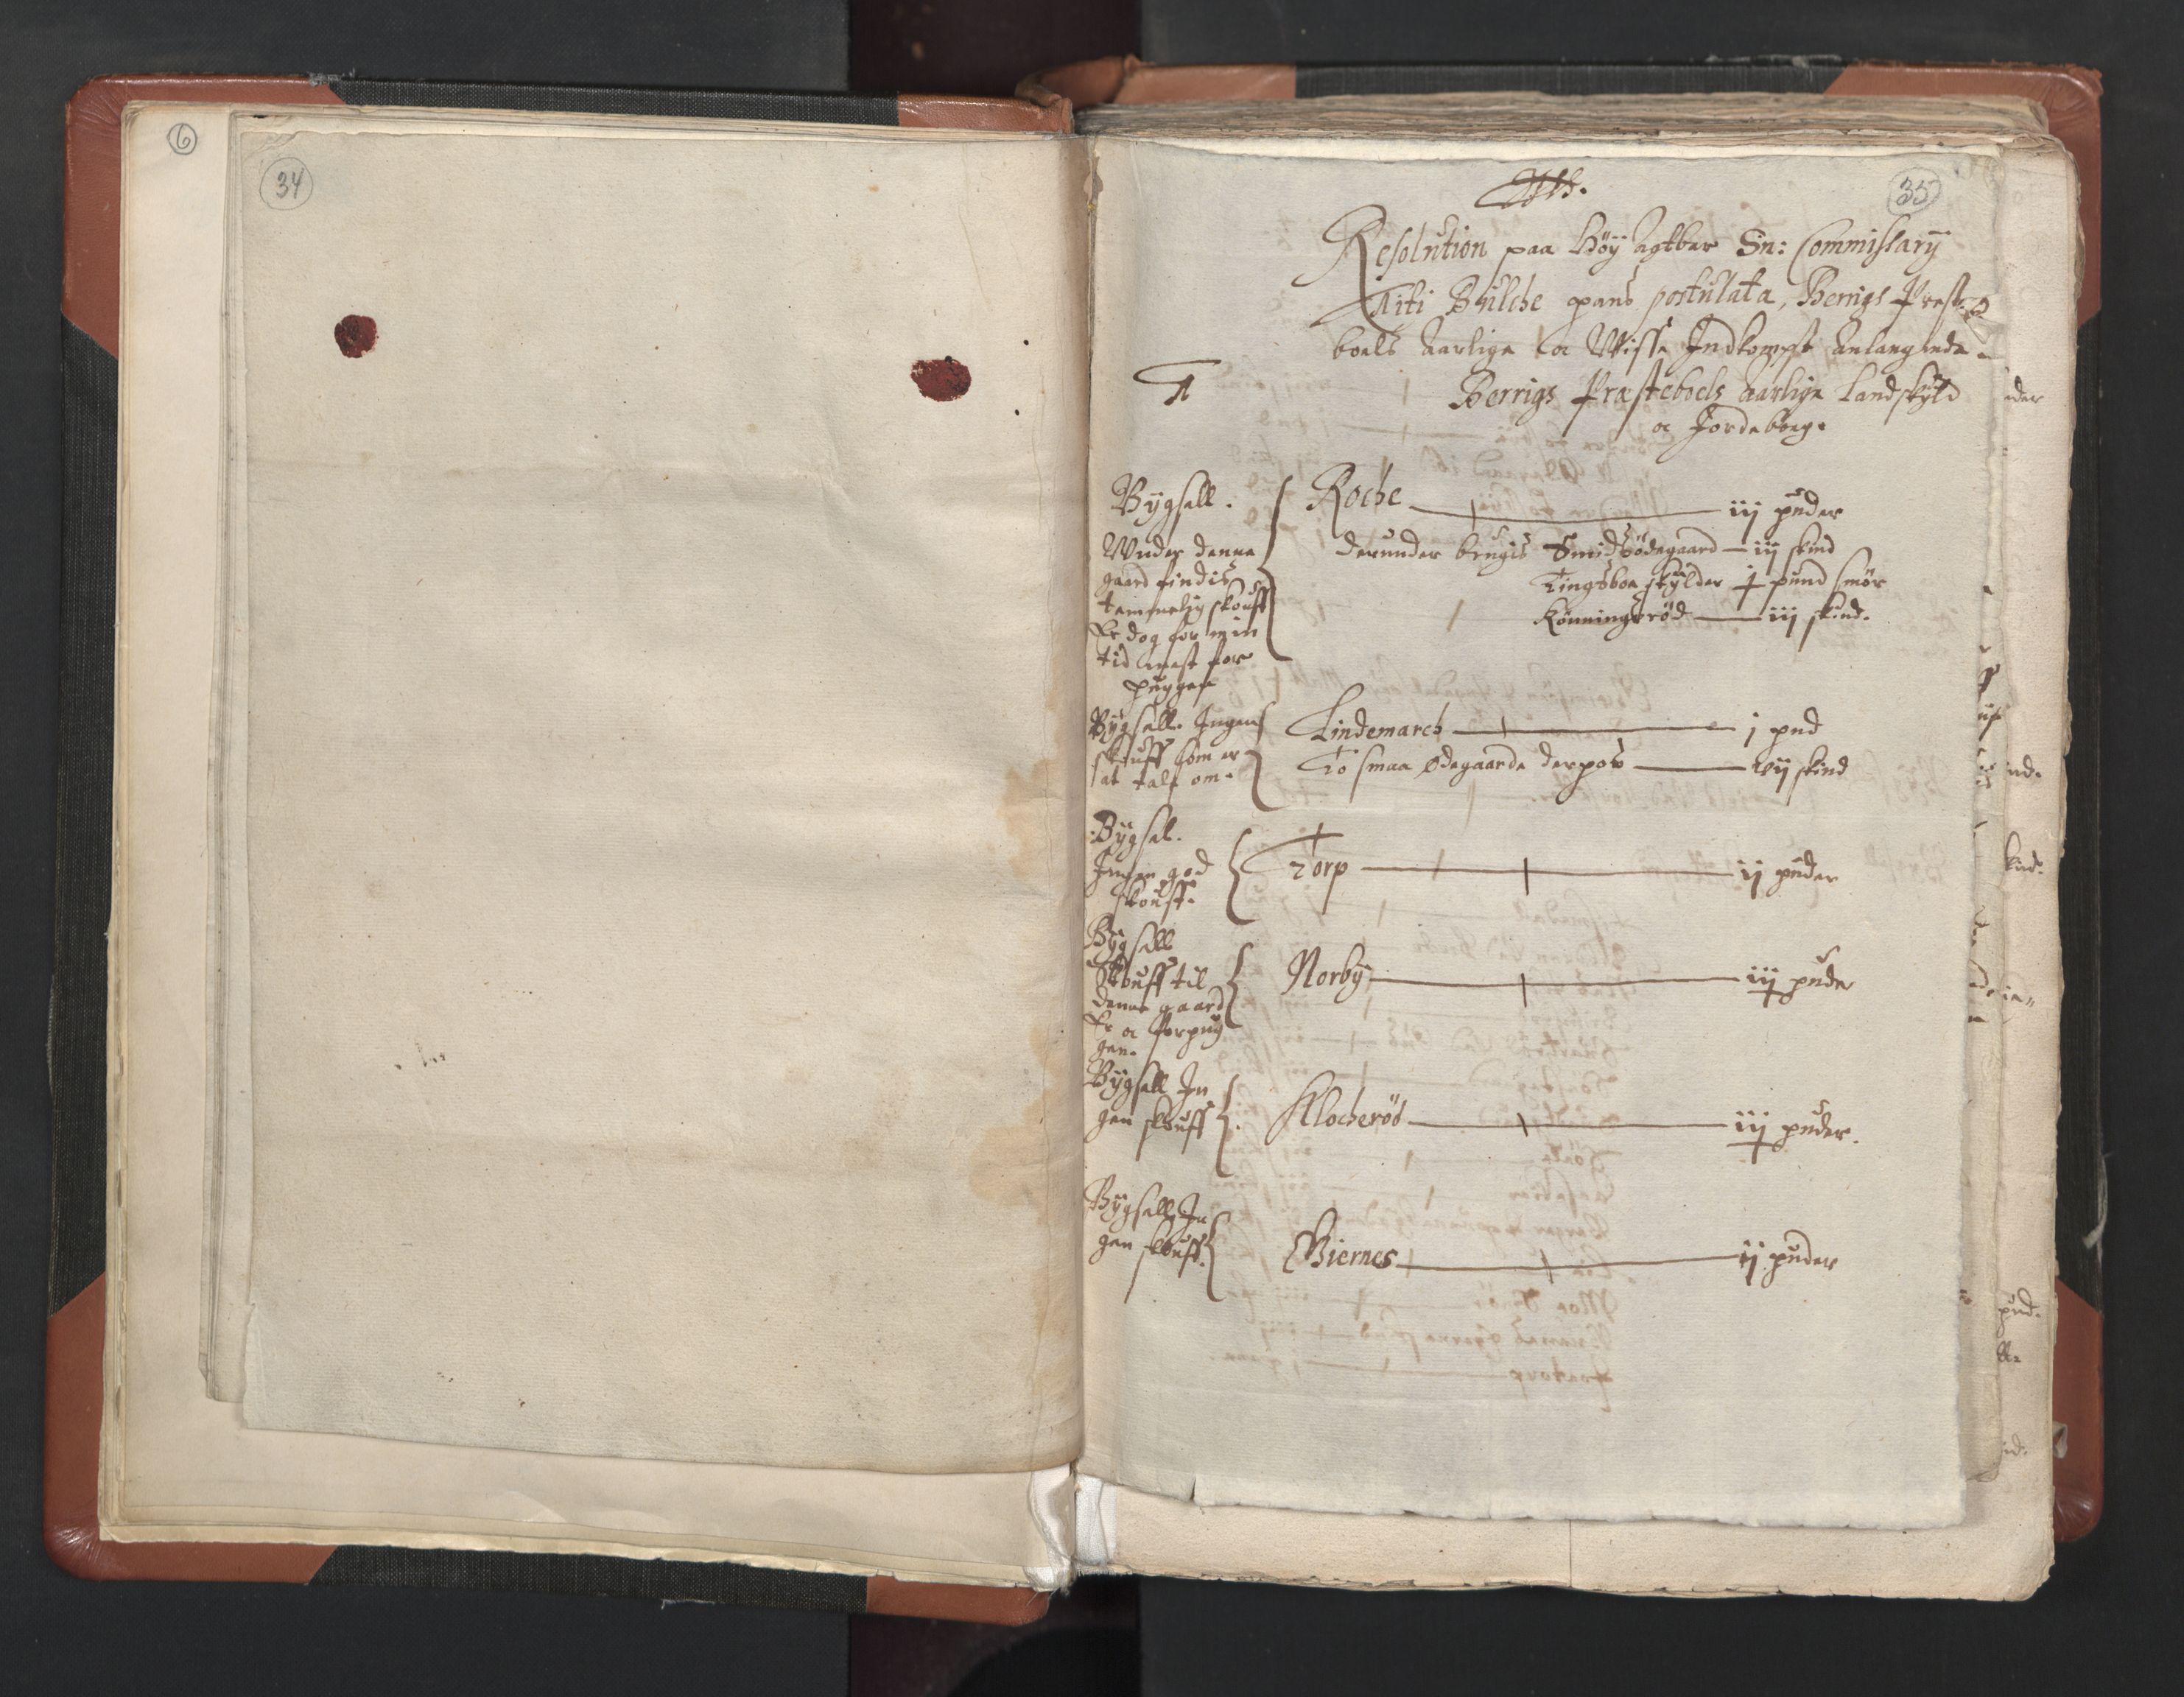 6
34
35
Resolution paa höÿ agtbar Sn: Commissarÿ
Titi Bülche hans postulata, Berrigs Præste
boels aarlige oc Wisse Indkompst anlangende.
A
Berrigs Præsteboels aarlige Landskÿld
oc Jordebog.
Bÿgsell.
Under denne
gaard findis
temmelig skouff
Er dog for min
tid mest for
huggen
Roche iij pŭder
derunder brugis Smidsödegaard iij skind
Tingsboe skÿlder j pŭnd smör
Könningsröd iij skind.
Bÿgsell. Ingen
skouff som er
at tale om.
Lindemarch j pŭd
To smaa Ødegaarde derpaa vij skind
Bÿgsel.
Ingen god
skouff.
Torp ij pŭder
Bÿgsell
Skouff til
denne gaard
Er oc forhug
gen.
Norbÿ iij pŭder
Bÿgsell In
gen skouff
Klocheröd iij pŭder.
Bÿgsell In
gen skouff.
Biernes ij pŭder